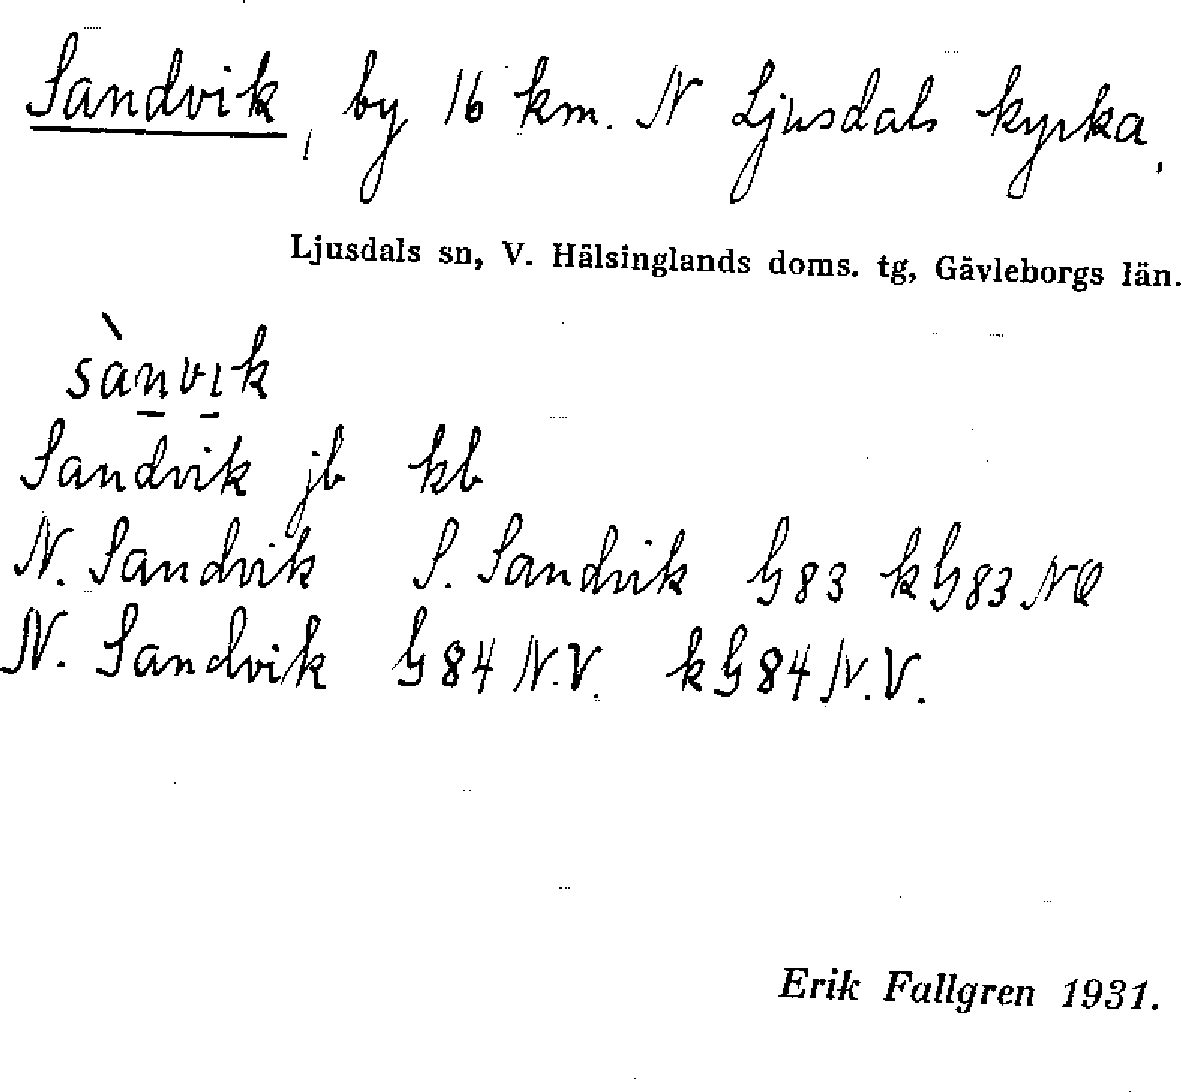 Sandvik, by 16 km. N Ljusdals kyrka.
Ljusdals sn, V. Hälsinglands doms. tg, Gävleborgs län.
sànvık
Sandvik jb kb
N. Sandvik S. Sandvik G83 kG83 NO
N. Sandvik G84 N.V. kG84 N.V.
Erik Fallgren 1931.